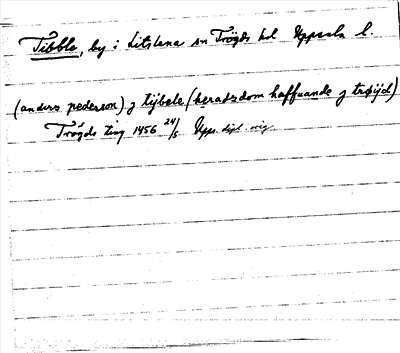 Tibble, by i Litslena sn Trögds hd Uppsala l.
(anders pederson) j tijbele (heradsdom haffuande j trøijd)
Trögds ting 1456 24/5 Upps. dipl. orig.